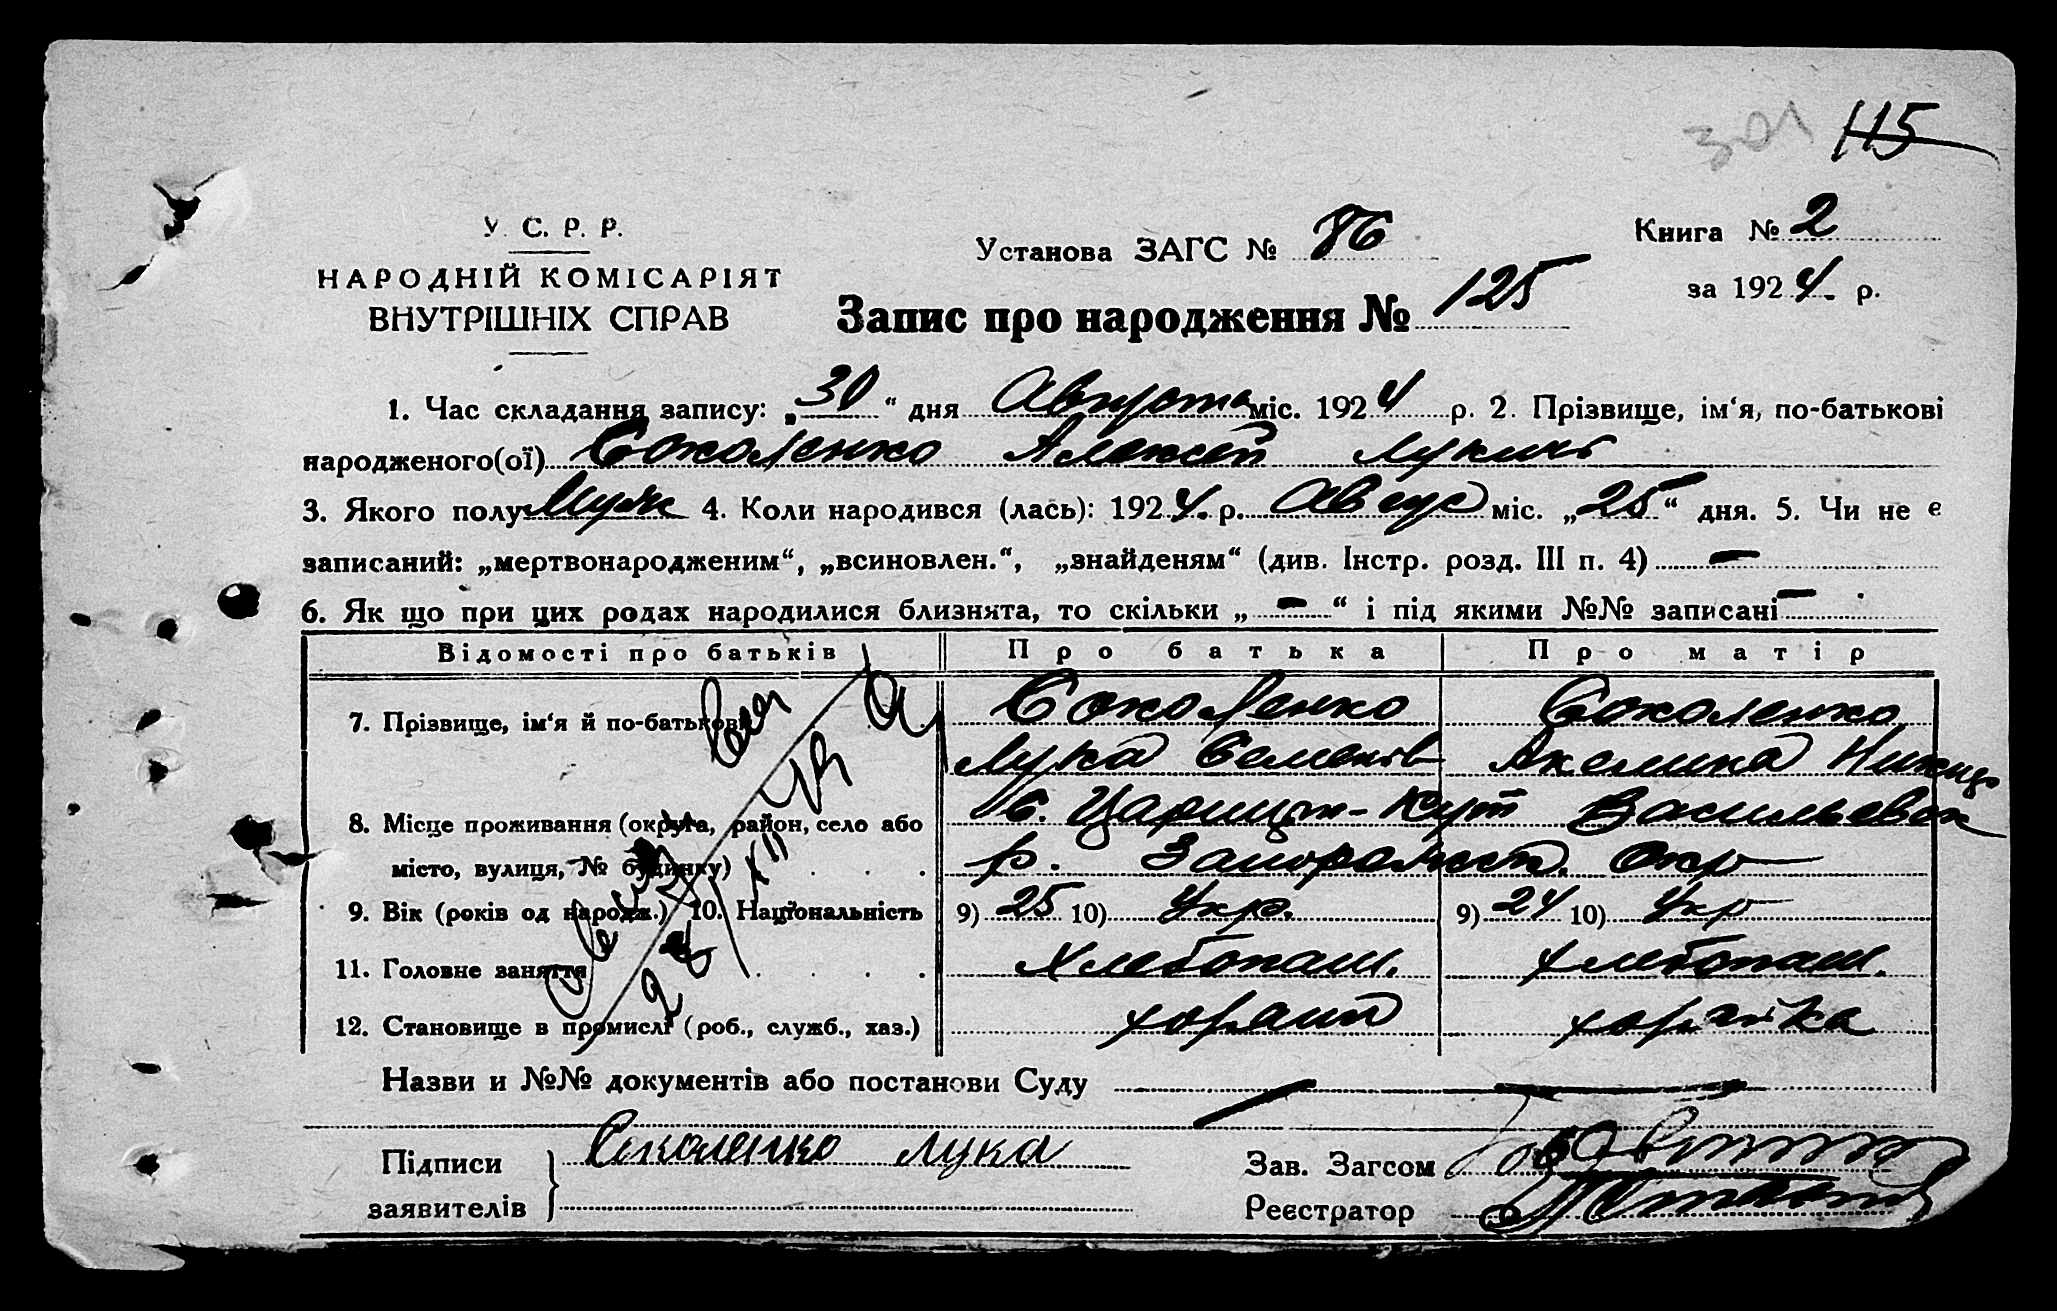 301 115
У. С. Р. Р.
НАРОДНІЙ КОМІСАРІЯТ
ВНУТРІШНІХ СПРАВ
Установа ЗАГС № 86
Книга № 2
за 1924 р.
Запис про народження № 125
1. Час складання запису: „30“ дня Августа міс. 1924 р. 2. Прізвище, ім‘я, по-батькові
народженого(ої) Соколенко Алексей Лукичъ
3. Якого полу Муж 4. Коли народився (лась): 1924 р. Август міс. „25“ дня. 5. Чи не є
записаний: „мертвонародженим“, „всиновлен.“, „знайденям“ (див. Інстр. розд. III п. 4) —
6. Як що при цих родах народилися близнята, то скільки „—“ і під якими №№ записані —
Відомості про батьків Про батька Про матір
7. Прізвище, ім‘я й по-батькові Соколенко Соколенко
Лука Семенов Акелина Никит
8. Місце проживання (округа, район, село або с. Царицын-Кут Васильевск
місто, вулиця, № будинку) р. Запорожск. Окр
9. Вік (років од народж.) 10. Національність 9) 25 10) Укр. 9) 24 10) Укр
11. Головне заняття Хлебопаш. Хлебопаш.
12. Становище в промислі (роб., служб., хаз.) хозяин хозяйка
28/XII
Назви и №№ документів або постанови Суду —
Підписи заявителів Соколенко Лука
Зав. Загсом
Реєстратор